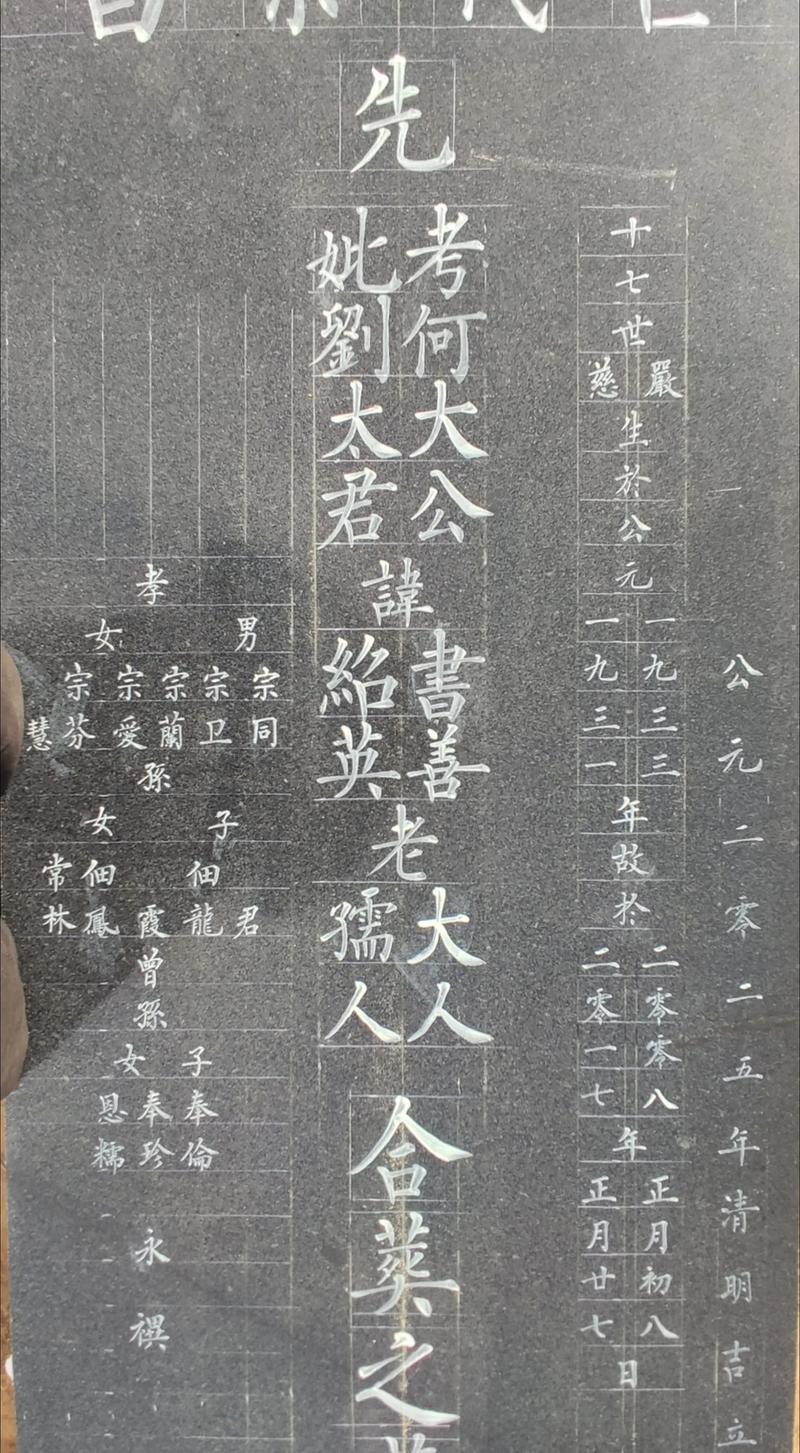 公元二零二五年清明吉立
十七世
嚴
慈
生於公元
一九三三
一九三一
年故於
二零零八
二零一七
年
正月初八
正月廿七
日
先
考何大公
妣劉太君
諱
書善
紹英
老
大人
孺人
合葬之
孝
男
女
宗同
宗卫
宗蘭
宗愛
宗芬
慧
孫
子
女
君
佃龍
霞
佃鳳
常林
曾孫
子
女
奉倫
奉珍
恩糯
永禩